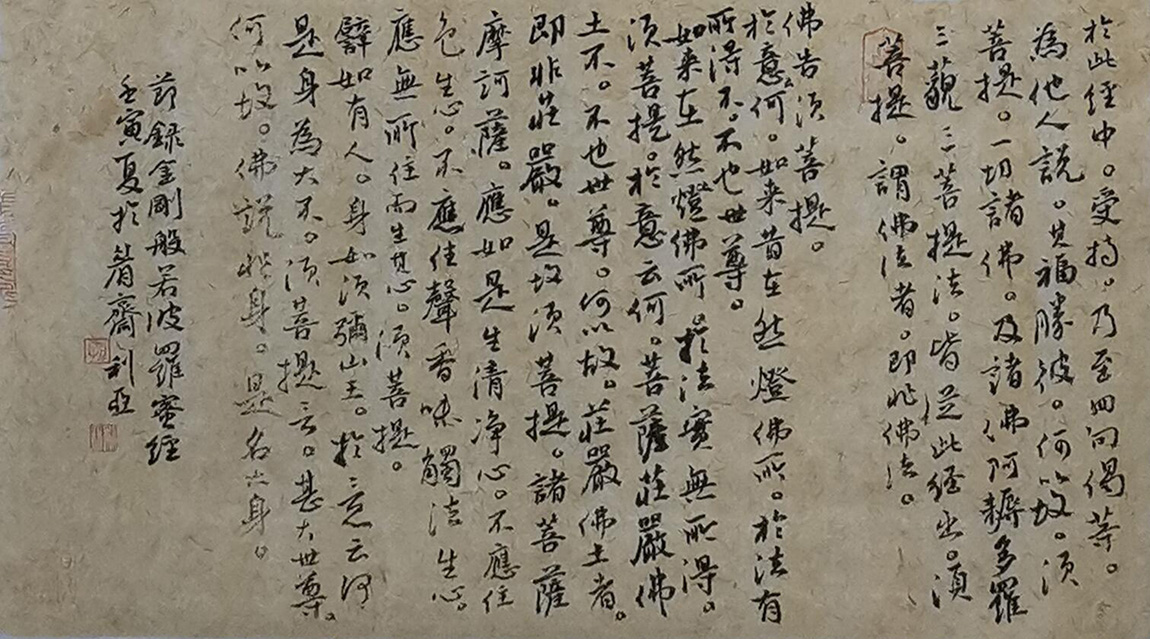 於此經中。受持。乃至四句偈等。
為他人說。其福勝彼。何以故。須
菩提。一切諸佛。及諸佛阿耨多羅
三藐三菩提法。皆從此經出。須
菩提。謂佛法者。即非佛法。
佛告須菩提。
於意云何。如来昔在然燈佛所。於法有
所得不。不也世尊。
如来在然燈佛所。於法實無所得。
須菩提。於意云何。菩薩莊嚴佛
土不。不也世尊。何以故。莊嚴佛土者。
即非莊嚴。是故須菩提。諸菩薩
摩訶薩。應如是生清淨心。不應住
色生心。不應住聲香味觸法生心。
應無所住而生其心。須菩提。
譬如有人。身如須彌山王。於意云何
是身為大不。須菩提言。甚大世尊。
何以故。佛說非身。是名大身。
節錄金剛般若波羅蜜經
壬寅夏於 齋利亞